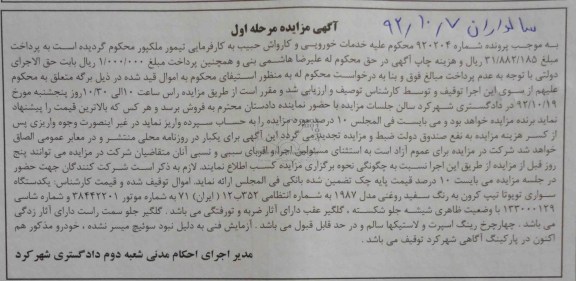 سالداران ۹۲/۱۰/۷
آگهی مزایده مرحله اول
به موجب پرونده شماره ۹۲۰۲۰۴ محکوم علیه خدمات خوروبی و کارواش حبیب به کارفرمایی تیمور ملکپور محکوم گردیده است به پرداخت
مبلغ ۳۱/۸۸۲/۱۸۵ ریال و هزینه چاپ آگهی در حق محکوم له علیرضا هاشمی بنی و همچنین پرداخت مبلغ ۱/۰۰۰/۰۰۰ ریال بابت حق الاجرای
دولتی با توجه به عدم پرداخت مبالغ فوق و بنا به درخواست محکوم له به منظور استیفای محکوم به اموال قید شده در ذیل برگه متعلق به محکوم
علیهم از سوی این اجرا توقیف و توسط کارشناس توصیف و ارزیابی شد و مقرر است از طریق مزایده راس ساعت ۱۰الی ۱۰/۳۰روز پنجشنبه مورخ
۹۲/۱۰/۱۹ در دادگستری شهرکرد سالن جلسات مزایده با حضور نماینده دادستان محترم به فروش برسد و هر کس که بالاترین قیمت را پیشنهاد
نماید برنده مزایده خواهد بود و می بایست فی المجلس ۱۰ درصد مورد مزایده را به حساب سپرده واریز نماید در غیر اینصورت وجوه واریزی پس
از کسر هزینه مزایده به نفع صندوق دولت ضبط و مزایده تجدید می گردد این آگهی برای یکبار در روزنامه محلی منتشر و در معابر عمومی الصاق
خواهد شد شرکت در مزایده برای عموم آزاد است به استثنای مسئولین اجرا و اقربای سببی و نسبی آنان متقاضیان شرکت در مزایده می توانند پنج
روز قبل از مزایده از طریق این اجرا نسبت به چگونگی نحوه برگزاری مزایده کسب اطلاع نمایند. لازم به ذکر است شرکت کنندگان جهت حضور
در جلسه مزایده می بایست ۱۰ درصد قیمت پایه چک تضمین شده بانکی فی المجلس ارائه نماید. اموال توقیف شده و قیمت کارشناس: یکدستگاه
سواری تویوتا تیپ کرون به رنگ سفید روغنی مدل ۱۹۸۷ به شماره انتظامی ۳۵۲ب۱۲ ( ایران) ۷۱ به شماره موتور ۳۸۴۴۲۲۰۱ و شماره شاسی
۱۳۳۰۰۰۱۲۹ با وضعیت ظاهری شیشه جلو شکسته ، گلگیر عقب دارای آثار ضربه و تورفتگی می باشد . گلگیر جلو سمت راست دارای آثار زدگی
می باشد . چهارچرخ رینگ اسپرت و لاستیکها سالم و در حد قابل قبول می باشد . آزمایش فنی به دلیل نبود سوئیچ میسر نشده ، خودرو مذکور هم
اکنون در پارکینگ آگاهی شهرکرد توقیف می باشد .
مدیر اجرای احکام مدنی شعبه دوم دادگستری شهرکرد